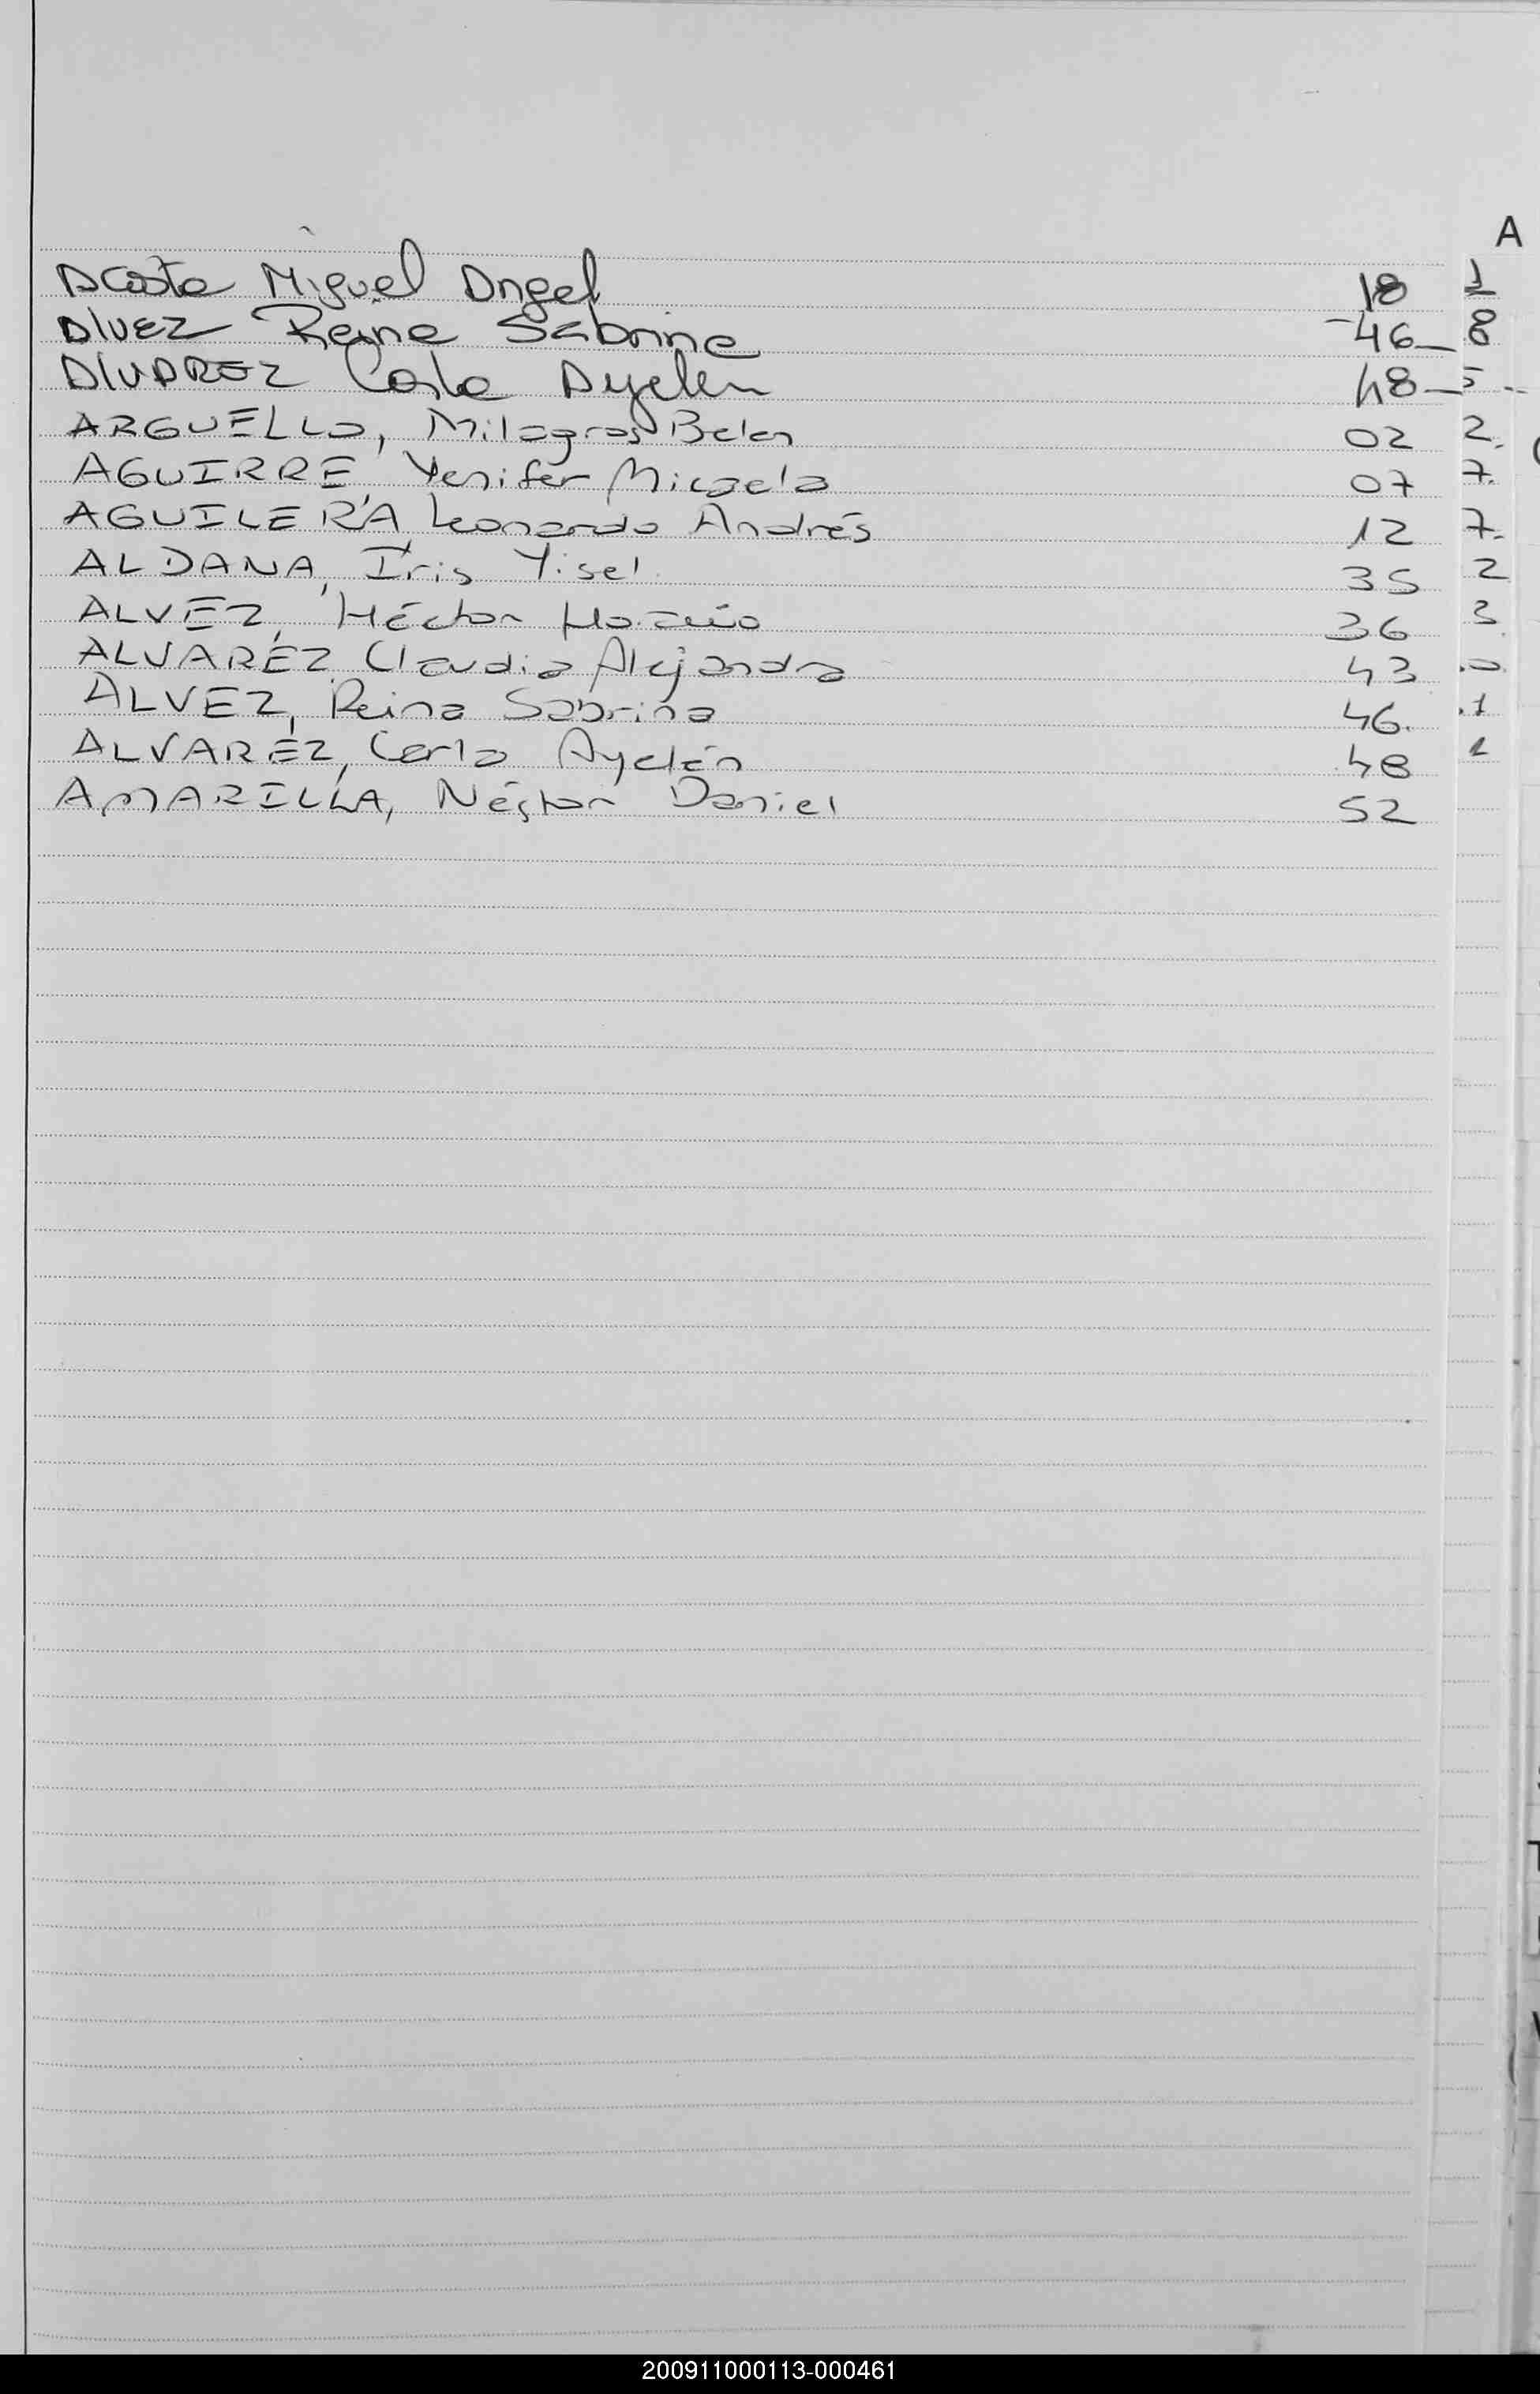 A
Acosta Miguel Angel 18
Alvez Reina Sabrina 46
Alvarez Carla Ayelen 48
ARGUELLO, Milagros Belen 02
AGUIRRE, Yenifer Micaela 07
AGUILERA Leonardo Andrés 12
ALDANA, Iris Yisel 35
ALVEZ, Héctor Horacio 36
ALVAREZ Claudia Alejandra 43
ALVEZ, Reina Sabrina 46
ALVAREZ, Carla Ayelén 48
AMARILLA, Néstor Daniel 52
200911000113-000461